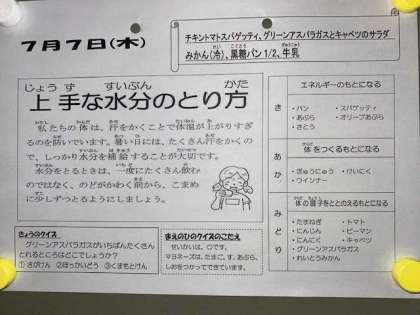 7月7日(木)
チキントマトスパゲッティ、グリーンアスパラガスとキャベツのサラダ
みかん(冷)、黒糖パン1/2、牛乳
上手な水分のとり方
私たちの体は、汗をかくことで体温が上がりすぎ
るのを防いでいます。暑い日には、たくさん汗をかくの
で、しっかり水分を補給することが大切です。
水分をとるときは、一度にたくさん飲む
のではなく、のどがかわく前から、こまめ
に少しずつとるようにしましょう。
きょうのクイズ
グリーンアスパラガスがいちばんたくさん
とれるところはどこでしょうか?
①さがけん ②ほっかいどう ③くまもとけん
まえのひのクイズのこたえ
せいかいは、〇です。
マヨネーズは、たまご、す、あぶら、
しおをつかってできています。
エネルギーのもとになる
き
・パン ・スパゲティ
・あぶら ・オリーブあぶら
・さとう
体をつくるもとになる
あか
・ぎゅうにゅう ・けいにく
・ウインナー
体の調子をととのえるもとになる
みどり
・たまねぎ ・トマト
・にんじん ・ピーマン
・にんにく ・キャベツ
・グリーンアスパラガス
・れいとうみかん